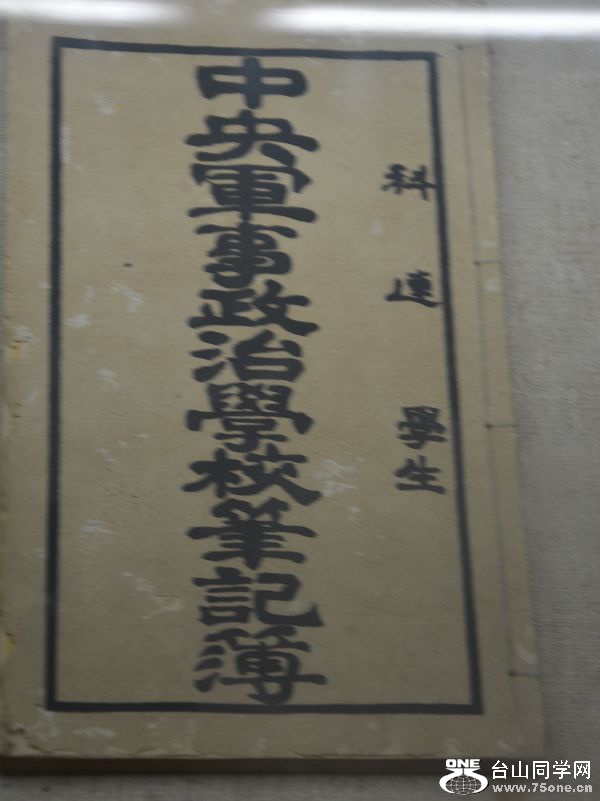 科 連 學生
中央軍事政治學校筆記簿
ONE 台山同学网
www.75one.cn